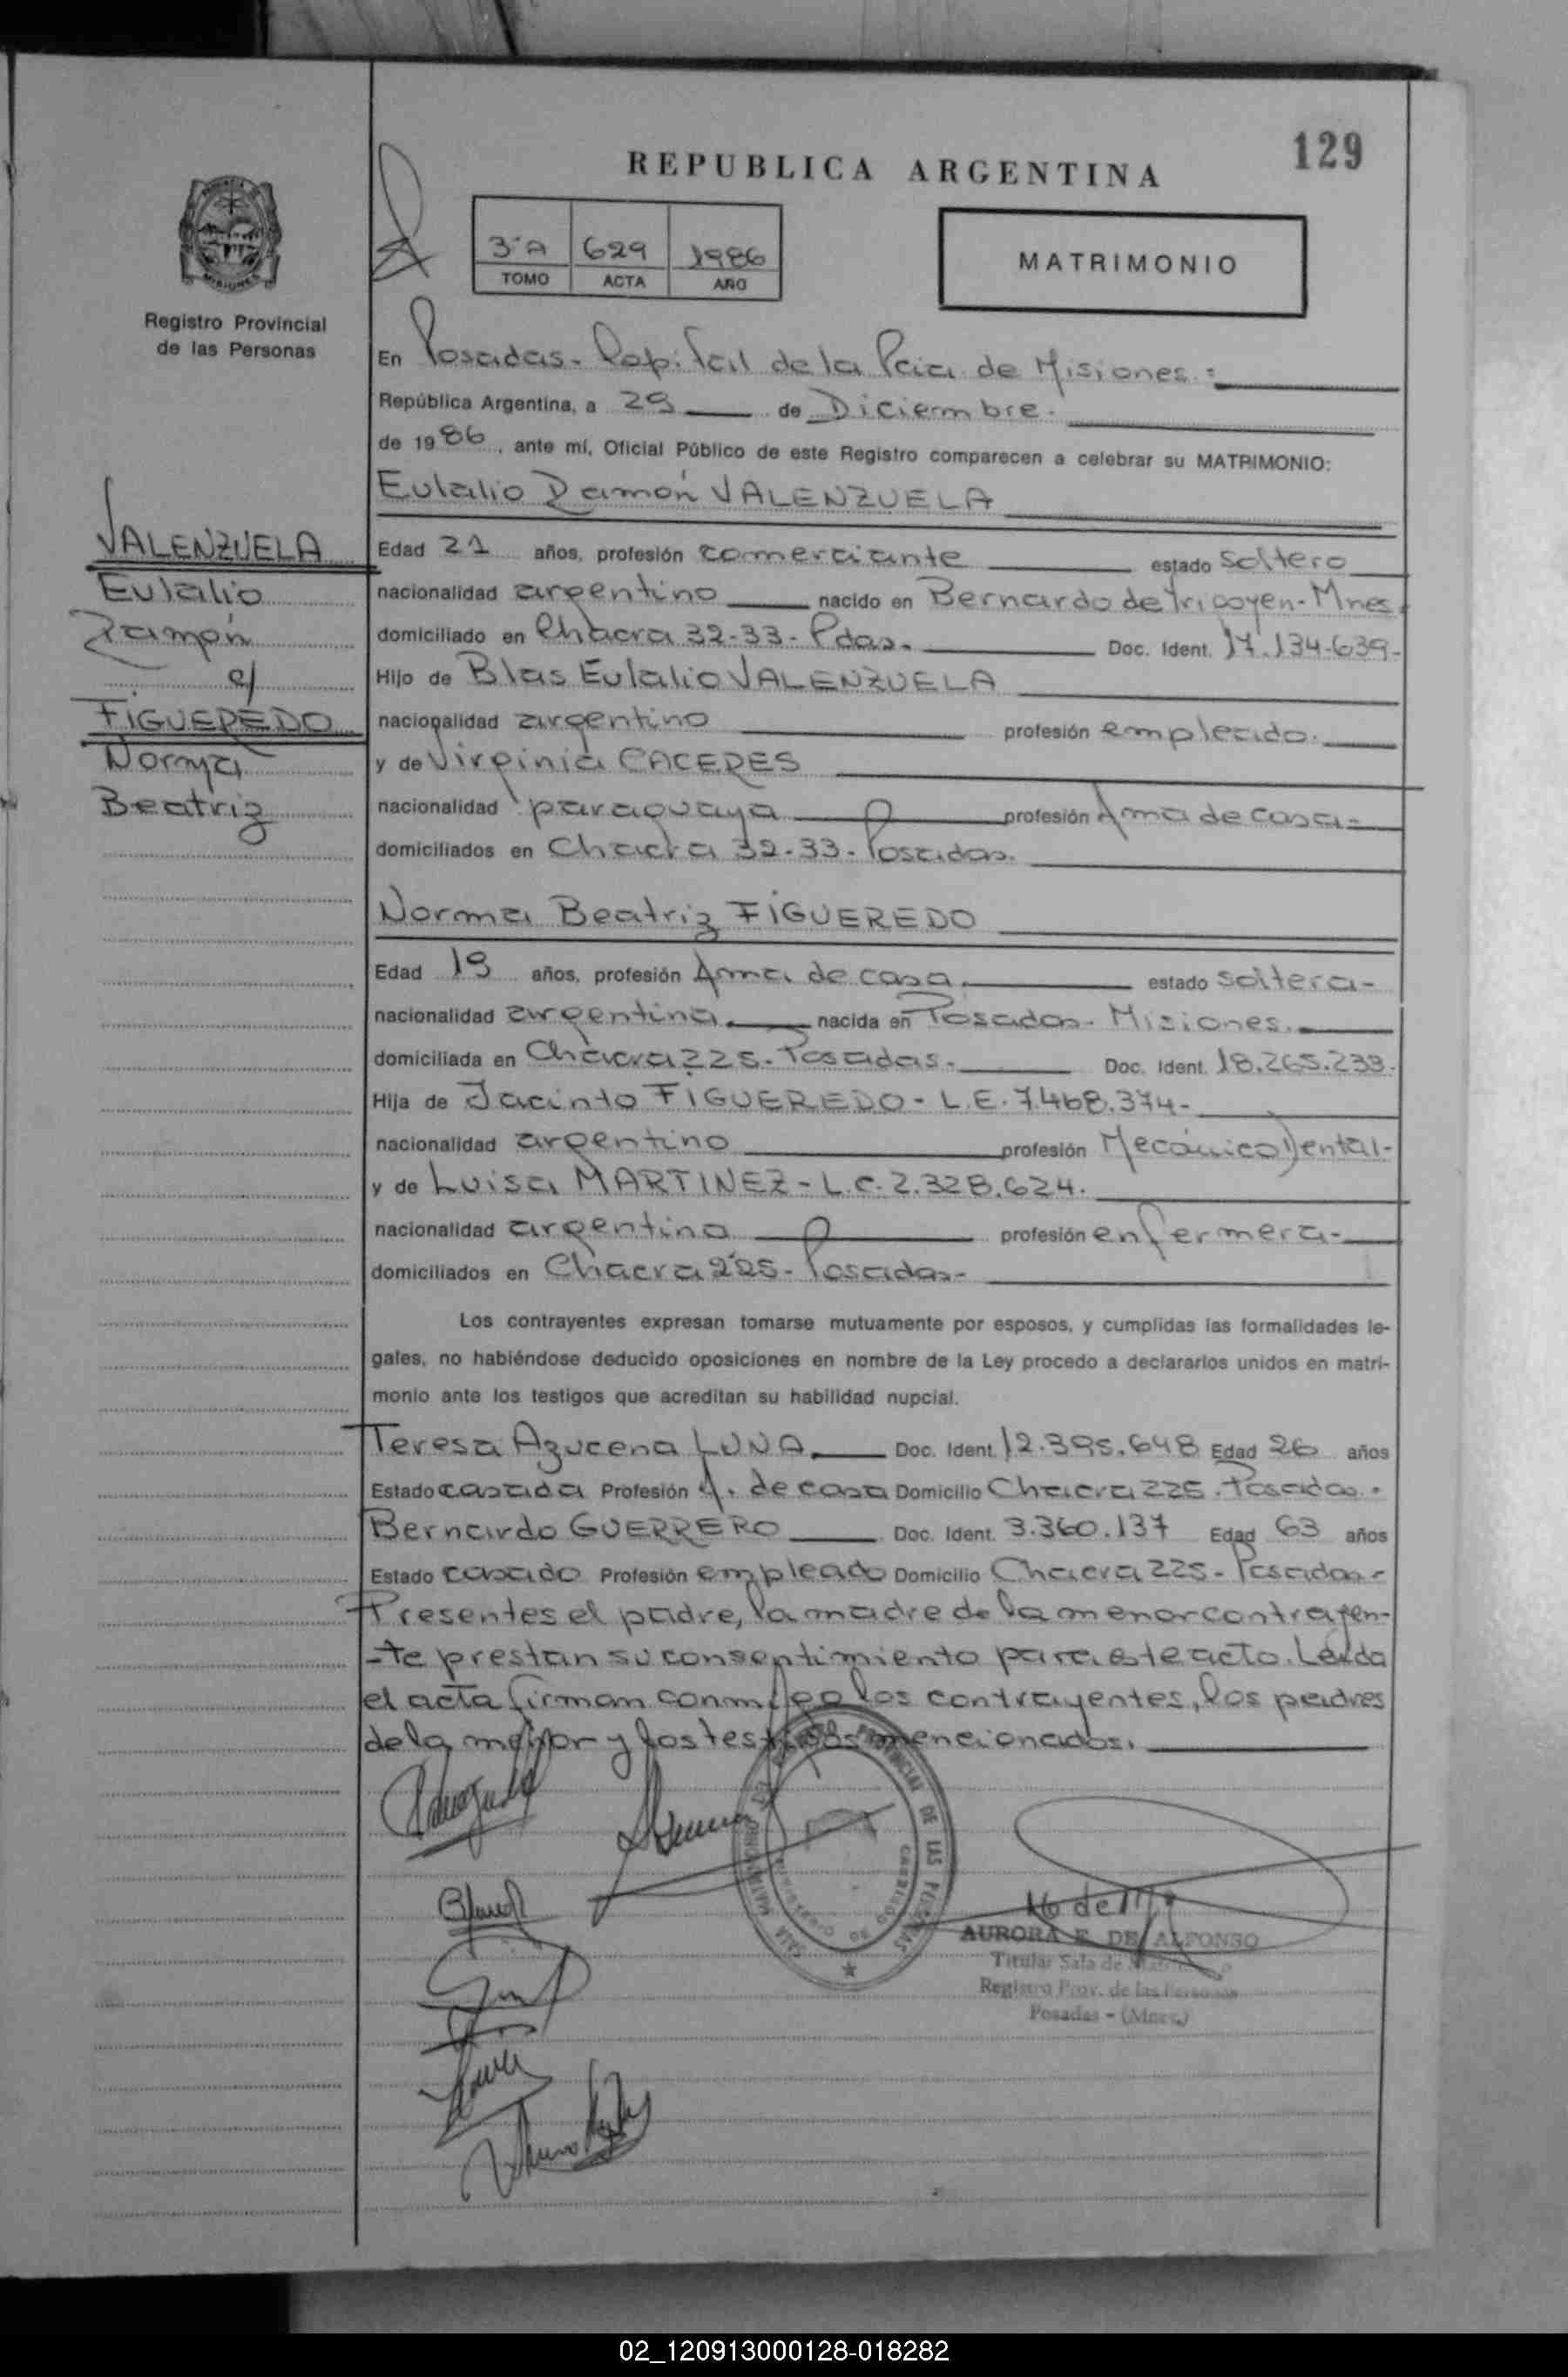 129
REPUBLICA ARGENTINA
3ºA 629 1986
TOMO ACTA AÑO
MATRIMONIO
MISIONES
Registro Provincial
de las Personas
En Posadas- Capital de la Pcia de Misiones.=
República Argentina, a 29 de Diciembre.
de 1986, ante mí, Oficial Público de este Registro comparecen a celebrar su MATRIMONIO:
Eulalio Ramón VALENZUELA
VALENZUELA
Eulalio
Ramón
c/
FIGUEREDO
Norma
Beatriz
Edad 21 años, profesión comerciante estado soltero
nacionalidad argentino nacido en Bernardo de Irigoyen- Mnes.
domiciliado en Chacra 32-33- Pdas. Doc. Ident. 17.134.639-
Hijo de Blas Eulalio VALENZUELA
nacionalidad argentino profesión empleado.
y de Virginia CACERES
nacionalidad paraguaya profesión Ama de casa-
domiciliados en Chacra 32-33- Posadas.
Norma Beatriz FIGUEREDO
Edad 19 años, profesión Ama de casa. estado soltera-
nacionalidad argentina. nacida en Posadas- Misiones.
domiciliada en Chacra 225- Posadas- Doc. Ident. 18.265.233-
Hija de Jacinto FIGUEREDO- L.E. 7.468.374-
nacionalidad argentino profesión Mecánico Dental-
y de Luisa MARTINEZ- L.C. 2.328.624.
nacionalidad argentina profesión enfermera-
domiciliados en Chacra 225- Posadas-
Los contrayentes expresan tomarse mutuamente por esposos, y cumplidas las formalidades le-
gales, no habiéndose deducido oposiciones en nombre de la Ley procedo a declararlos unidos en matri-
monio ante los testigos que acreditan su habilidad nupcial.
Teresa Azucena LUNA. Doc. Ident. 12.395.648 Edad 26 años
Estado casada Profesión A. de casa Domicilio Chacra 225. Posadas.
Bernardo GUERRERO Doc. Ident. 3.360.137 Edad 63 años
Estado casado Profesión empleado Domicilio Chacra 225- Posadas-
Presentes el padre, la madre de la menor contrayen-
-te prestan su consentimiento para este acto. Leída
el acta firman conmigo los contrayentes, los padres
de la menor y los testigos mencionados.
AURORA E. DE ALFONSO
Titular Sala de
Registro Prov. de las Personas
Posadas - (Mnes.)
02_120913000128-018282